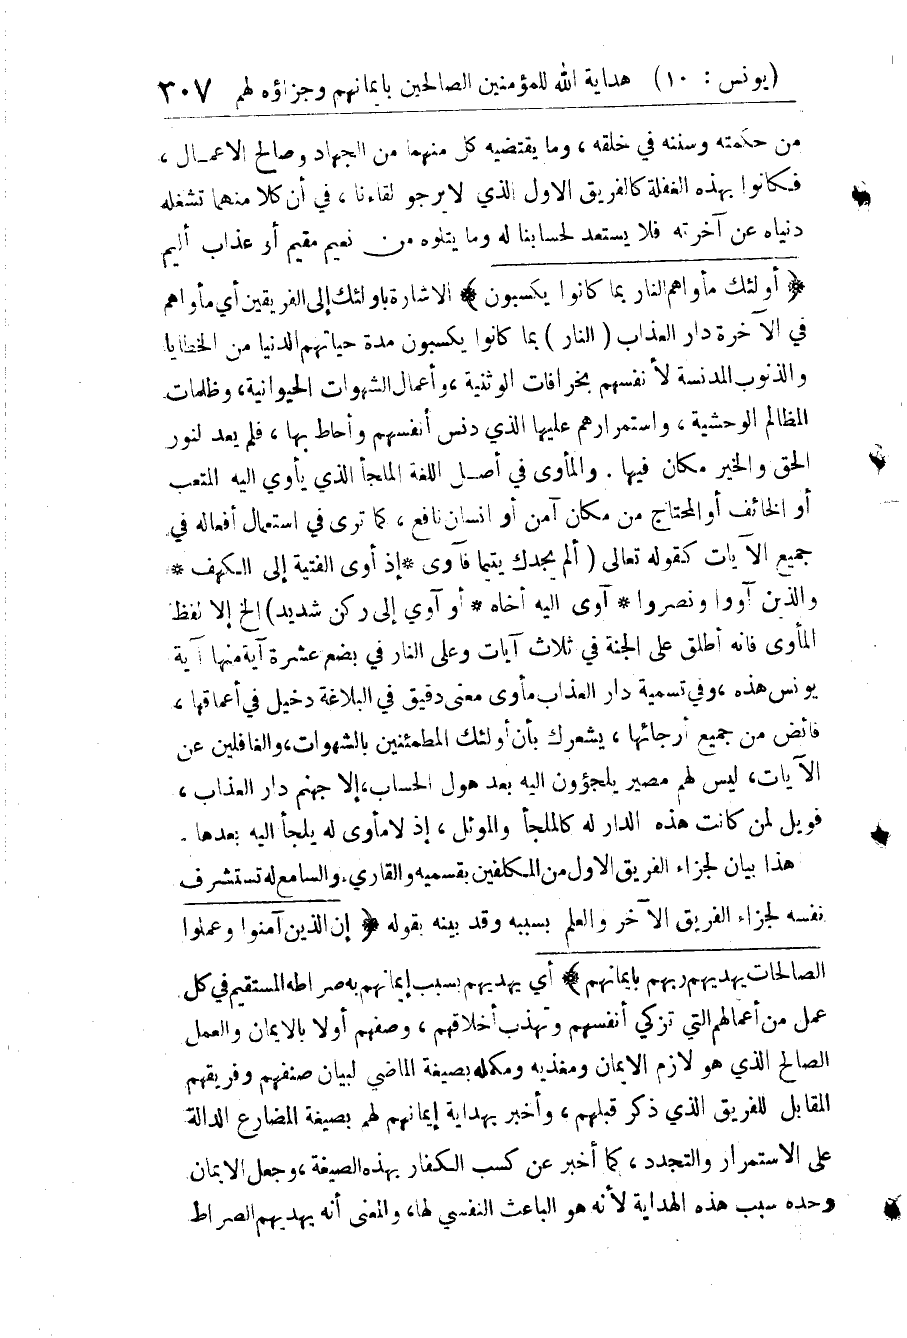 (يونس : ١٠) هداية الله للمؤمنين الصالحين بايمانهم وجزاؤه لهم ٣٠٧
من حكمته وسننه في خلقه ، وما يقتضيه كل منهما من الجهاد وصالح الاعمال ،
فكانوا بهذه الغفلة كالفريق الاول الذي لا يرجو لقاءنا ، في أن كلا منهما تشغله
دنياه عن آخرته فلا يستعد لحسابنا له وما يتلوه من نعيم مقيم أو عذاب أليم
﴿ أولئك مأواهم النار بما كانوا يكسبون ﴾ الاشارة باولئك إلى الفريقين أي مأواهم
في الآخرة دار العذاب ( النار ) بما كانوا يكسبون مدة حياتهم الدنيا من الخطايا
والذنوب المدنسة لأنفسهم بخرافات الوثنية ، وأعمال الشهوات الحيوانية، وظلمات
المظالم الوحشية ، واستمرارهم عليها الذي دنس أنفسهم وأحاط بها ، فلم يعد لنور
الحق والخير مكان فيها . والمأوى في أصل اللغة الملجأ الذي يأوي اليه المتعب
أو الخائف أو المحتاج من مكان آمن أو انسان نافع ، كما ترى في استعمال أفعاله في
جميع الآيات كقوله تعالى ( ألم يجدك يتيما فآوى * إذ أوى الفتية إلى الكهف *
والذين آووا ونصروا * آوى اليه أخاه * أو آوي إلى ركن شديد) الخ إلا لفظ
المأوى فانه أطلق على الجنة في ثلاث آيات وعلى النار في بضع عشرة آية منها آية
يونس هذه ، وفي تسمية دار العذاب مأوى معنى دقيق في البلاغة دخيل في أعماقها ،
فائض من جميع أرجائها ، يشعرك بأن أولئك المطمئنين بالشهوات، والغافلين عن
الآيات، ليس لهم مصير يلجؤون اليه بعد هول الحساب، إلا جهنم دار العذاب ،
فويل لمن كانت هذه الدار له كالملجأ والموئل ، إذ لا مأوى له يلجأ اليه بعدها .
هذا بيان لجزاء الفريق الاول من المكلفين بقسميه والقاريء والسامع له تستشرف
نفسه لجزاء الفريق الآخر والعلم بسببه وقد بينه بقوله ﴿ إن الذين آمنوا وعملوا
الصالحات يهديهم ربهم بايمانهم ﴾ أي يهديهم بسبب إيمانهم به صراطه المستقيم في كل
عمل من أعمالهم التي تزكي أنفسهم وتهذب أخلاقهم ، وصفهم أولا بالايمان والعمل
الصالح الذي هو لازم الايمان ومغذيه ومكمله بصيغة الماضي لبيان صنفهم وفريقهم
المقابل للفريق الذي ذكر قبلهم ، وأخبر بهداية إيمانهم لهم بصيغة المضارع الدالة
على الاستمرار والتجدد ، كما أخبر عن كسب الكفار بهذه الصيغة ، وجعل الايمان
وحده سبب هذه الهداية لأنه هو الباعث النفسي لها، والمعنى أنه يهديهم الصراط